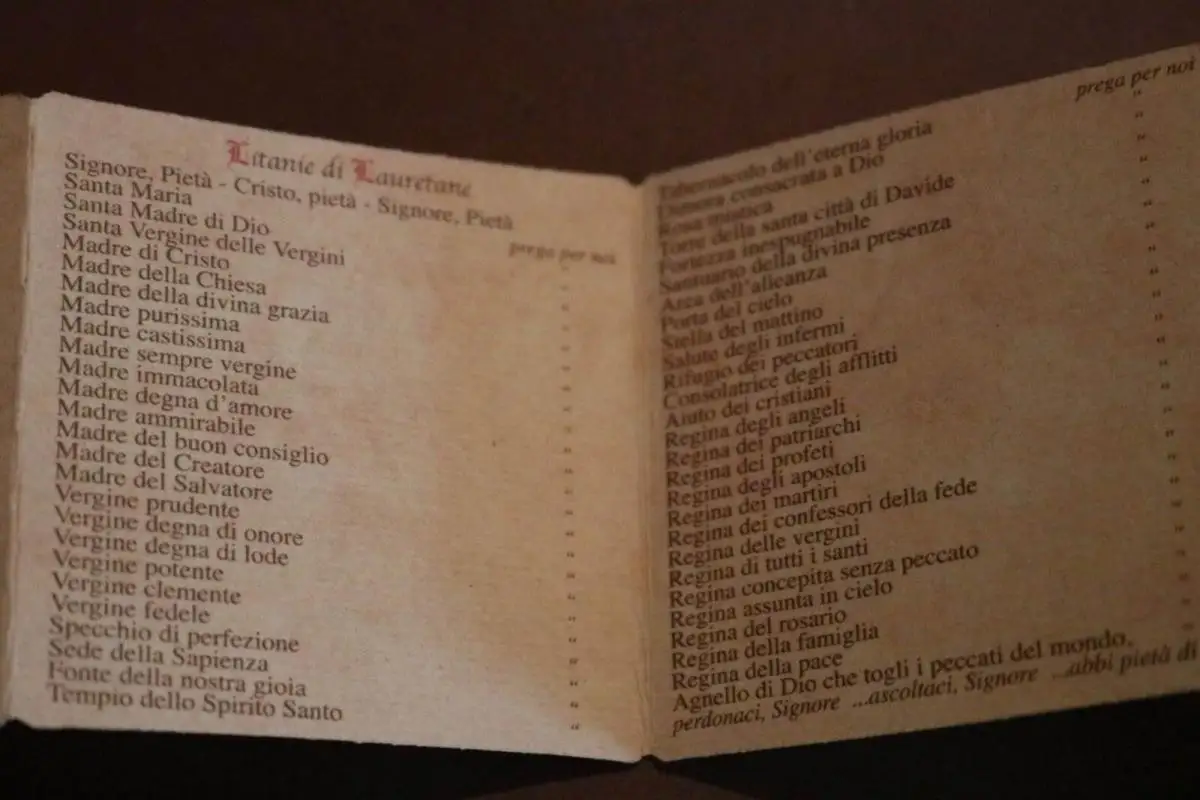 Litanie di Lauretane
Signore, Pietà - Cristo, pietà - Signore, Pietà
Santa Maria prega per noi
Santa Madre di Dio "
Santa Vergine delle Vergini "
Madre di Cristo "
Madre della Chiesa "
Madre della divina grazia "
Madre purissima "
Madre castissima "
Madre sempre vergine "
Madre immacolata "
Madre degna d'amore "
Madre ammirabile "
Madre del buon consiglio "
Madre del Creatore "
Madre del Salvatore "
Vergine prudente "
Vergine degna di onore "
Vergine degna di lode "
Vergine potente "
Vergine clemente "
Vergine fedele "
Specchio di perfezione "
Sede della Sapienza "
Fonte della nostra gioia "
Tempio dello Spirito Santo "
Tabernacolo dell'eterna gloria prega per noi
Dimora consacrata a Dio "
Rosa mistica "
Torre della santa città di Davide "
Fortezza inespugnabile "
Santuario della divina presenza "
Arca dell'alleanza "
Porta del cielo "
Stella del mattino "
Salute degli infermi "
Rifugio dei peccatori "
Consolatrice degli afflitti "
Aiuto dei cristiani "
Regina degli angeli "
Regina dei patriarchi "
Regina dei profeti "
Regina degli apostoli "
Regina dei martiri "
Regina dei confessori della fede "
Regina delle vergini "
Regina di tutti i santi "
Regina concepita senza peccato "
Regina assunta in cielo "
Regina del rosario "
Regina della famiglia "
Regina della pace "
Agnello di Dio che togli i peccati del mondo,
perdonaci, Signore ...ascoltaci, Signore ...abbi pietà di